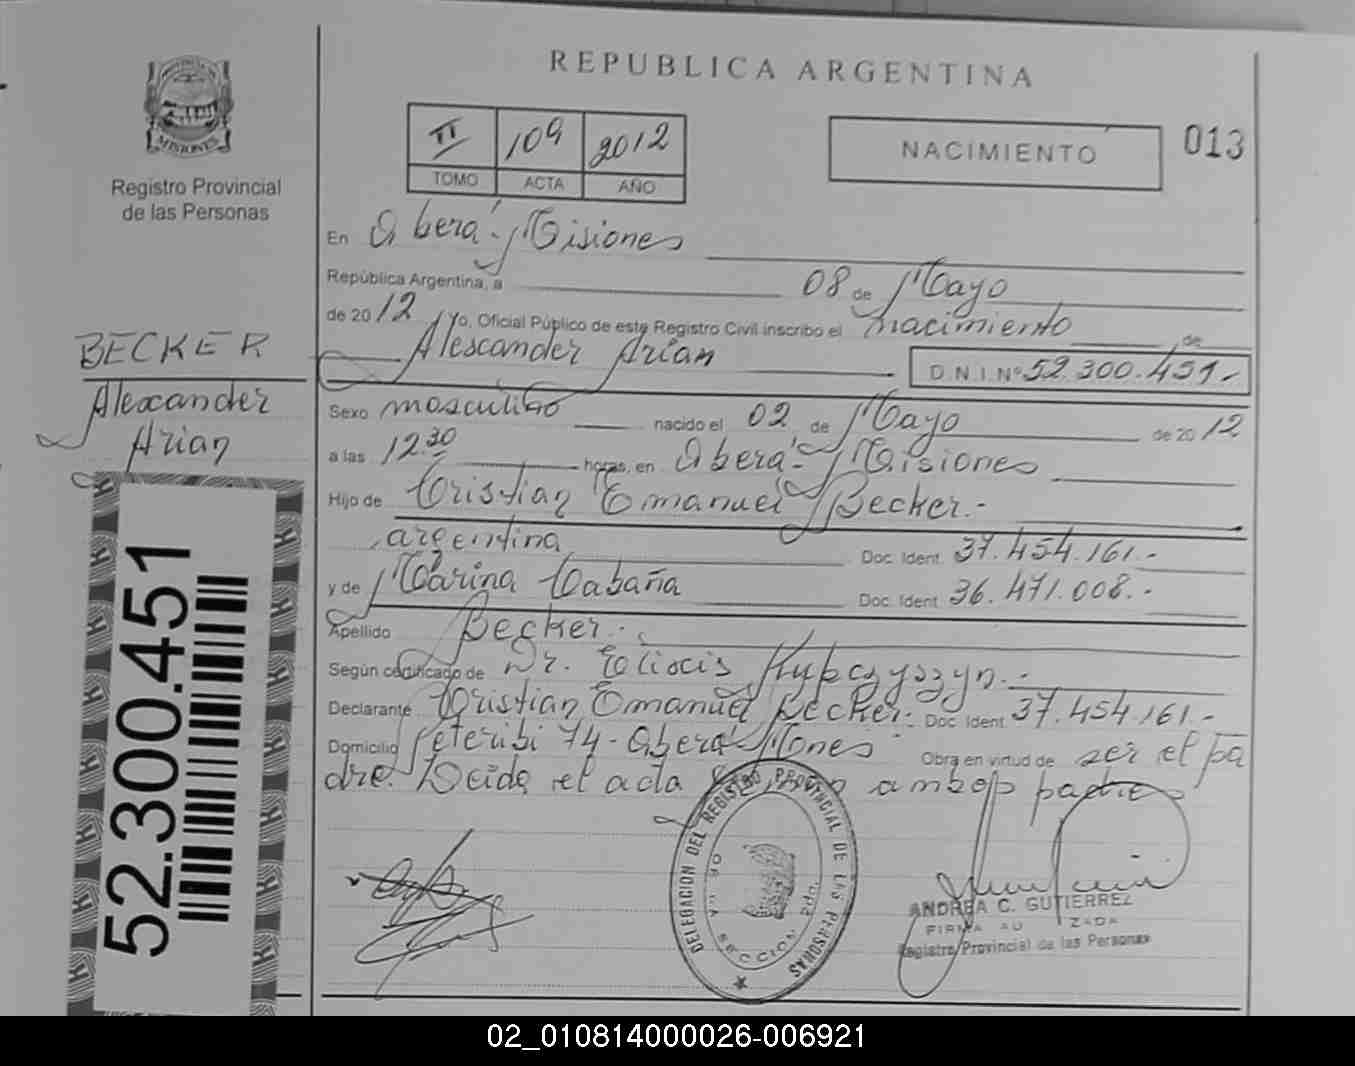 REPUBLICA ARGENTINA
PROVINCIA DE MISIONES
Registro Provincial
de las Personas
II 109 2012
TOMO ACTA AÑO
NACIMIENTO
013
En Oberá - Misiones
República Argentina, a 08 de Mayo
de 2012 Yo, Oficial Público de este Registro Civil inscribo el nacimiento de
Alexander Arian D.N.I.Nº 52.300.451.-
BECKER
Alexander
Arian
52.300.451
Sexo masculino nacido el 02 de Mayo de 2012
a las 12.30 horas, en Oberá - Misiones
Hijo de Cristian Emanuel Becker.-
argentina Doc. Ident. 37.454.161.-
y de Marina Cabaña Doc. Ident. 36.471.008.-
Apellido Becker.-
Según certificado de Dr.
Declarante Cristian Emanuel Becker.- Doc. Ident. 37.454.161.-
Domicilio 74 - Oberá Mnes Obra en virtud de ser el pa
dre. el acta ambos padres
DELEGACION DEL REGISTRO PROVINCIAL DE LAS PERSONAS
SECCION 2da.
ANDREA C. GUTIERREZ
FIRMA AU ZADA
Registro Provincial de las Personas
02_010814000026-006921